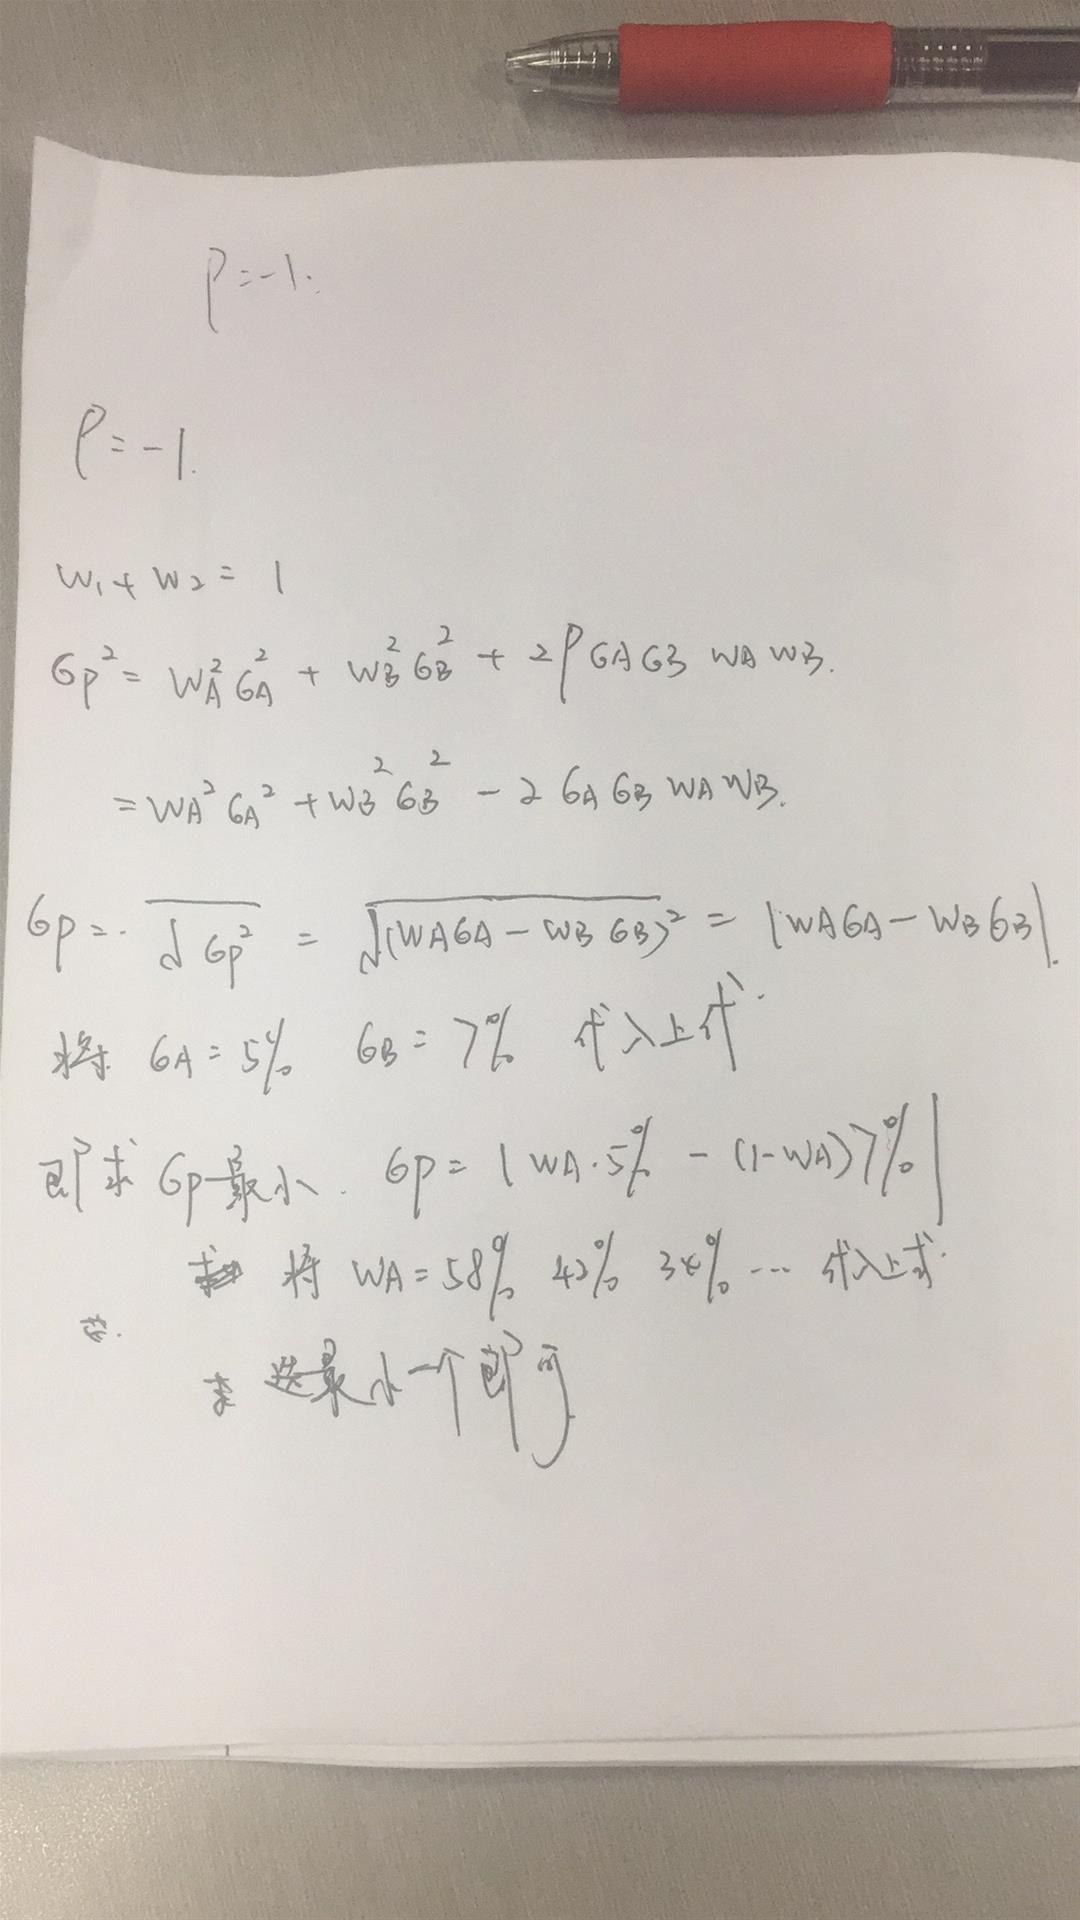 ρ=-1.
ρ=-1.
W₁+W₂=1
σp²=WA²σA²+WB²σB²+2ρσAσB WAWB.
=WA²σA²+WB²σB²-2σAσB WAWB.
σp=√σp²=√(WAσA-WBσB)²=|WAσA-WBσB|.
将 σA=5% σB=7% 代入上式.
即求σp最小. σp=|WA·5%-(1-WA)7%|
将 WA=58% 42% 34% … 代入上式.
选最小一个即可